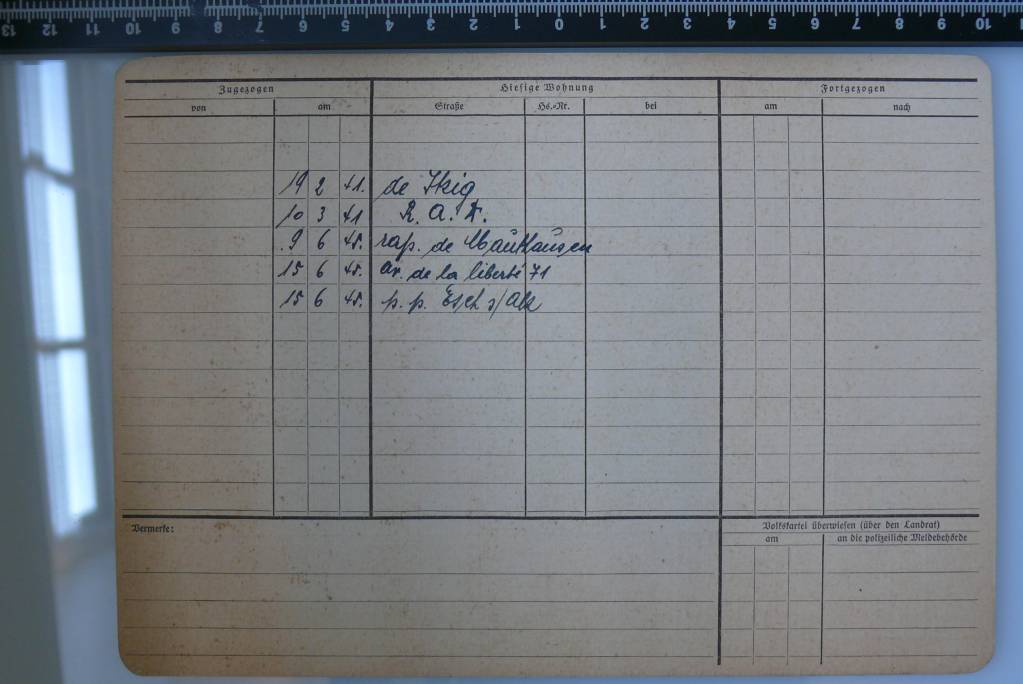 13 12 11 10 9 8 7 6 5 4 3 2 1 0 1 2 3 4 5 6 7 8 9 10
Zugezogen Hiesige Wohnung Fortgezogen
von am Straße Hs.-Nr. bei am nach
19 2 41. de
10 3 41 R. A. D.
9 6 45. rap. de Mauthausen
15 6 45. av. de la liberté 71
15 6 45. p. p. Esch s/Alz
Vermerke: Volkskartei überwiesen (über den Landrat)
am an die polizeiliche Meldebehörde